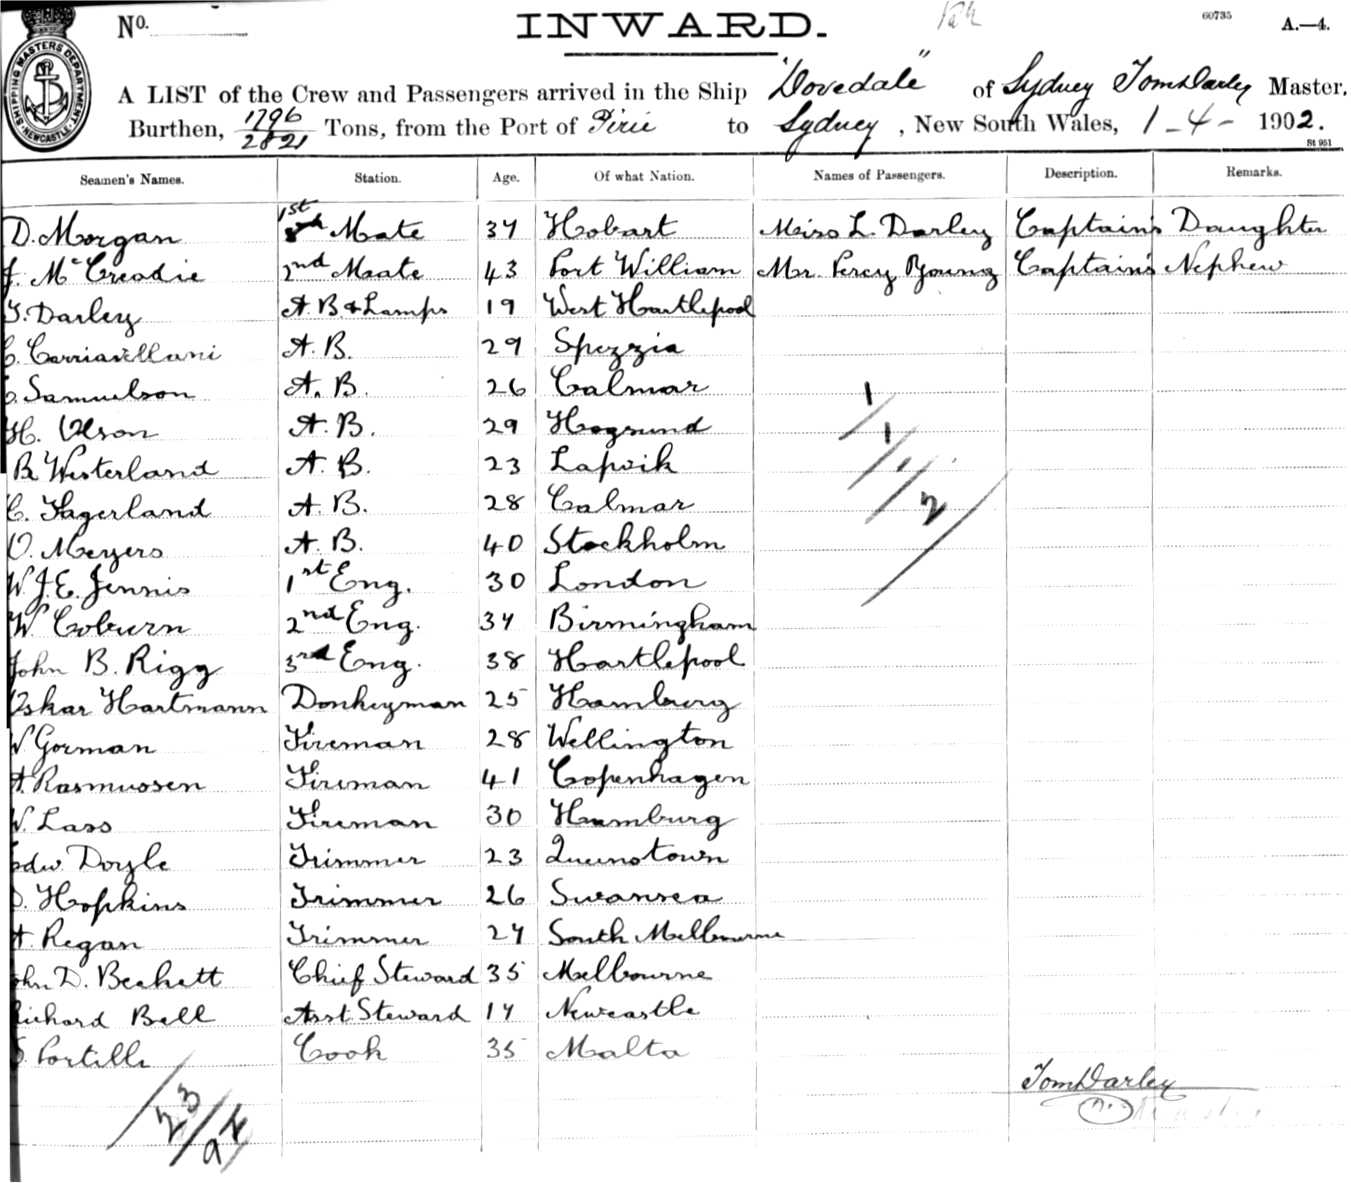 No.
INWARD.
60735
A.—4.
SHIPPING MASTERS DEPARTMENT NEWCASTLE
A LIST of the Crew and Passengers arrived in the Ship "Dovedale" of Sydney Tom Darley Master,
Burthen, 1796/2821 Tons, from the Port of Pirie to Sydney, New South Wales, 1-4-1902.
St 951
Seamen's Names. Station. Age. Of what Nation. Names of Passengers. Description. Remarks.
D. Morgan 1st Mate 37 Hobart Miss L. Darley Captain's Daughter
J. McCreadie 2nd Maate 43 Port William Mr. Percy Young Captain's Nephew
T. Darley A.B & Lamps 19 West Hartlepool
A.B. 29 Spezzia
Samuelson A.B. 26 Calmar
H. Olson A.B. 29 Hogsund
B. Westerland A.B. 23 Lapvik
C. Fagerland A.B. 28 Calmar
O. Meyers A.B. 40 Stockholm
W.J.E. Jennis 1st Eng. 30 London
W. Coburn 2nd Eng. 34 Birmingham
John B. Rigg 3rd Eng. 38 Hartlepool
Oskar Hartmann Donkeyman 25 Hamburg
W Gorman Fireman 28 Wellington
A. Rasmussen Fireman 41 Copenhagen
W. Lass Fireman 30 Hamburg
Edw Doyle Trimmer 23 Queenstown
D. Hopkins Trimmer 26 Swansea
A. Regan Trimmer 24 South Melbourne
John D. Beckett Chief Steward 35 Melbourne
Richard Bell Asst Steward 17 Newcastle
Portelli Cook 35 Malta
1/1/1/2/
Tom Darley
23/24